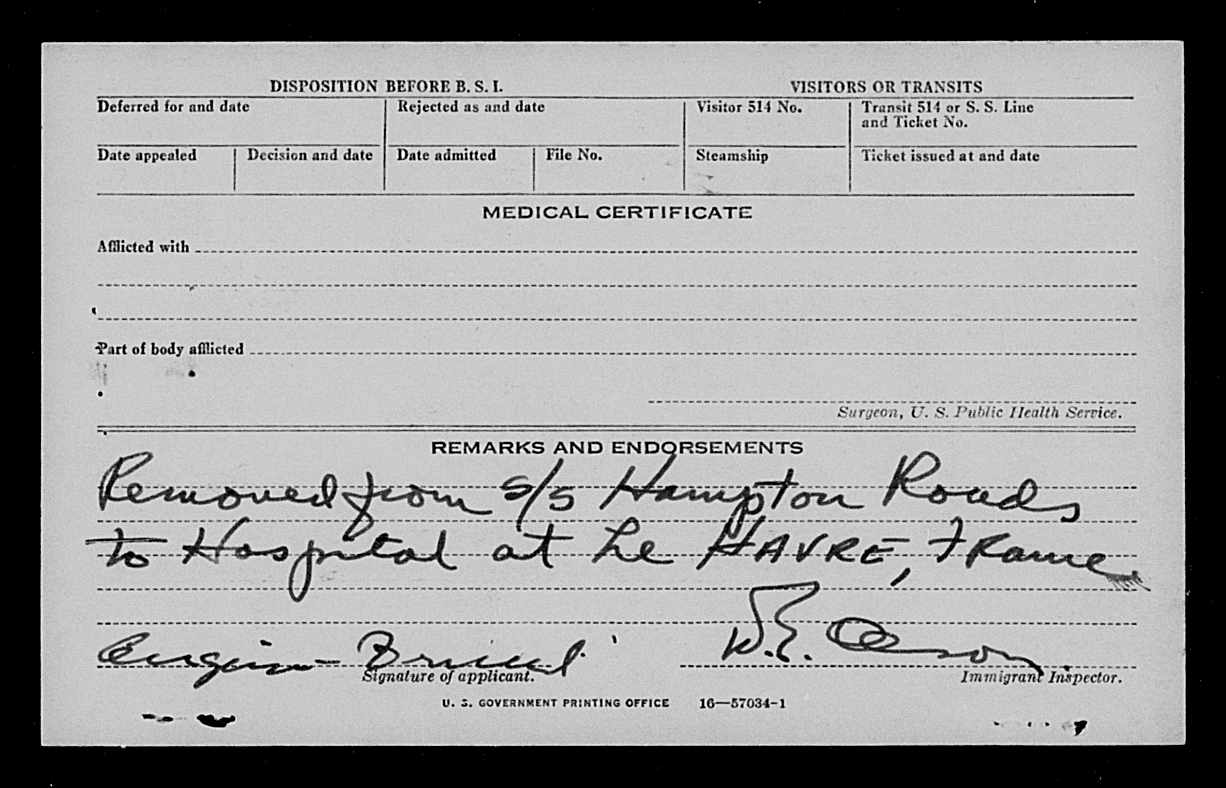 DISPOSITION BEFORE B. S. I. VISITORS OR TRANSITS
Deferred for and date Rejected as and date Visitor 514 No. Transit 514 or S. S. Line
and Ticket No.
Date appealed Decision and date Date admitted File No. Steamship Ticket issued at and date
MEDICAL CERTIFICATE
Afflicted with
Part of body afflicted
Surgeon, U. S. Public Health Service.
REMARKS AND ENDORSEMENTS
Removed from S/S Hampton Roads
to Hospital at Le HAVRE, France
W.E.
Signature of applicant. Immigrant Inspector.
U. S. GOVERNMENT PRINTING OFFICE 16—57034-1